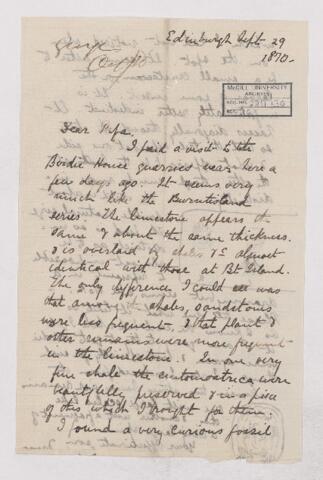 George
Edinburgh Sept 29
1870.
McGILL UNIVERSITY
ARCHIVES
ACC. NO.
REF.
Dear Papa,
I paid a visit to the
Burdie House quarries near here a
few days ago. It seems very
much like the Burntisland
series. The limestone appears the
same & about the same thickness.
& is overlaid by shales &c almost
identical with those at Bt. Island.
The only difference I could see was
that among the shales, sandstones
were less frequent, & that plant &
other remains were more frequent
in the limestone. In one very
fine shale the entomostraca were
beautifully preserved & in a piece
of this which I brought for them.
I found a very curious fossil